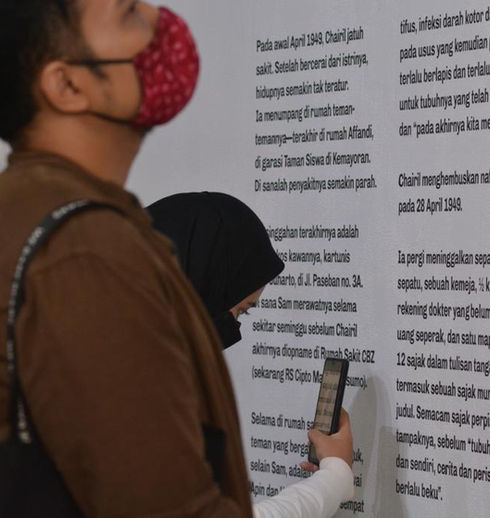 Pada awal April 1949, Chairil jatuh
sakit. Setelah bercerai dari istrinya,
hidupnya semakin tak teratur.
Ia menumpang di rumah teman-
temannya—terakhir di rumah Affandi,
di garasi Taman Siswa di Kemayoran.
Di sanalah penyakitnya semakin parah.
singgahan terakhirnya adalah
kos kawannya, kartunis
oeharto, di Jl. Paseban no. 3A.
sana Sam merawatnya selama
sekitar seminggu sebelum Chairil
akhirnya diopname di Rumah Sakit CBZ
(sekarang RS Cipto Ma sumo).
Selama di rumah sa
teman yang berga uk,
selain Sam, adala
Apin dan vai
sempat
tifus, infeksi darah kotor d
pada usus yang kemudian p
terlalu berlapis dan terlalu
untuk tubuhnya yang telah
dan "pada akhirnya kita me
Chairil menghembuskan na
pada 28 April 1949.
Ia pergi meninggalkan sepa
sepatu, sebuah kemeja, ½ k
rekening dokter yang belum
uang seperak, dan satu ma
12 sajak dalam tulisan tang
termasuk sebuah sajak mu
judul. Semacam sajak perpi
tampaknya, sebelum "tubuh
dan sendiri, cerita dan peris
berlalu beku".